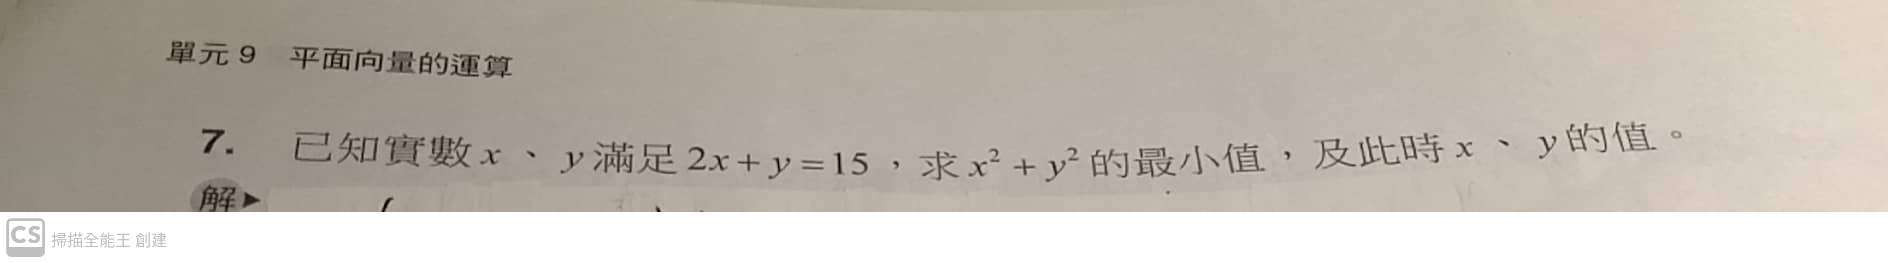 單元 9 平面向量的運算
7. 已知實數 x 、 y 滿足 2x + y = 15 ,求 x² + y² 的最小值,及此時 x 、 y 的值。
解▶
CS 掃描全能王 創建